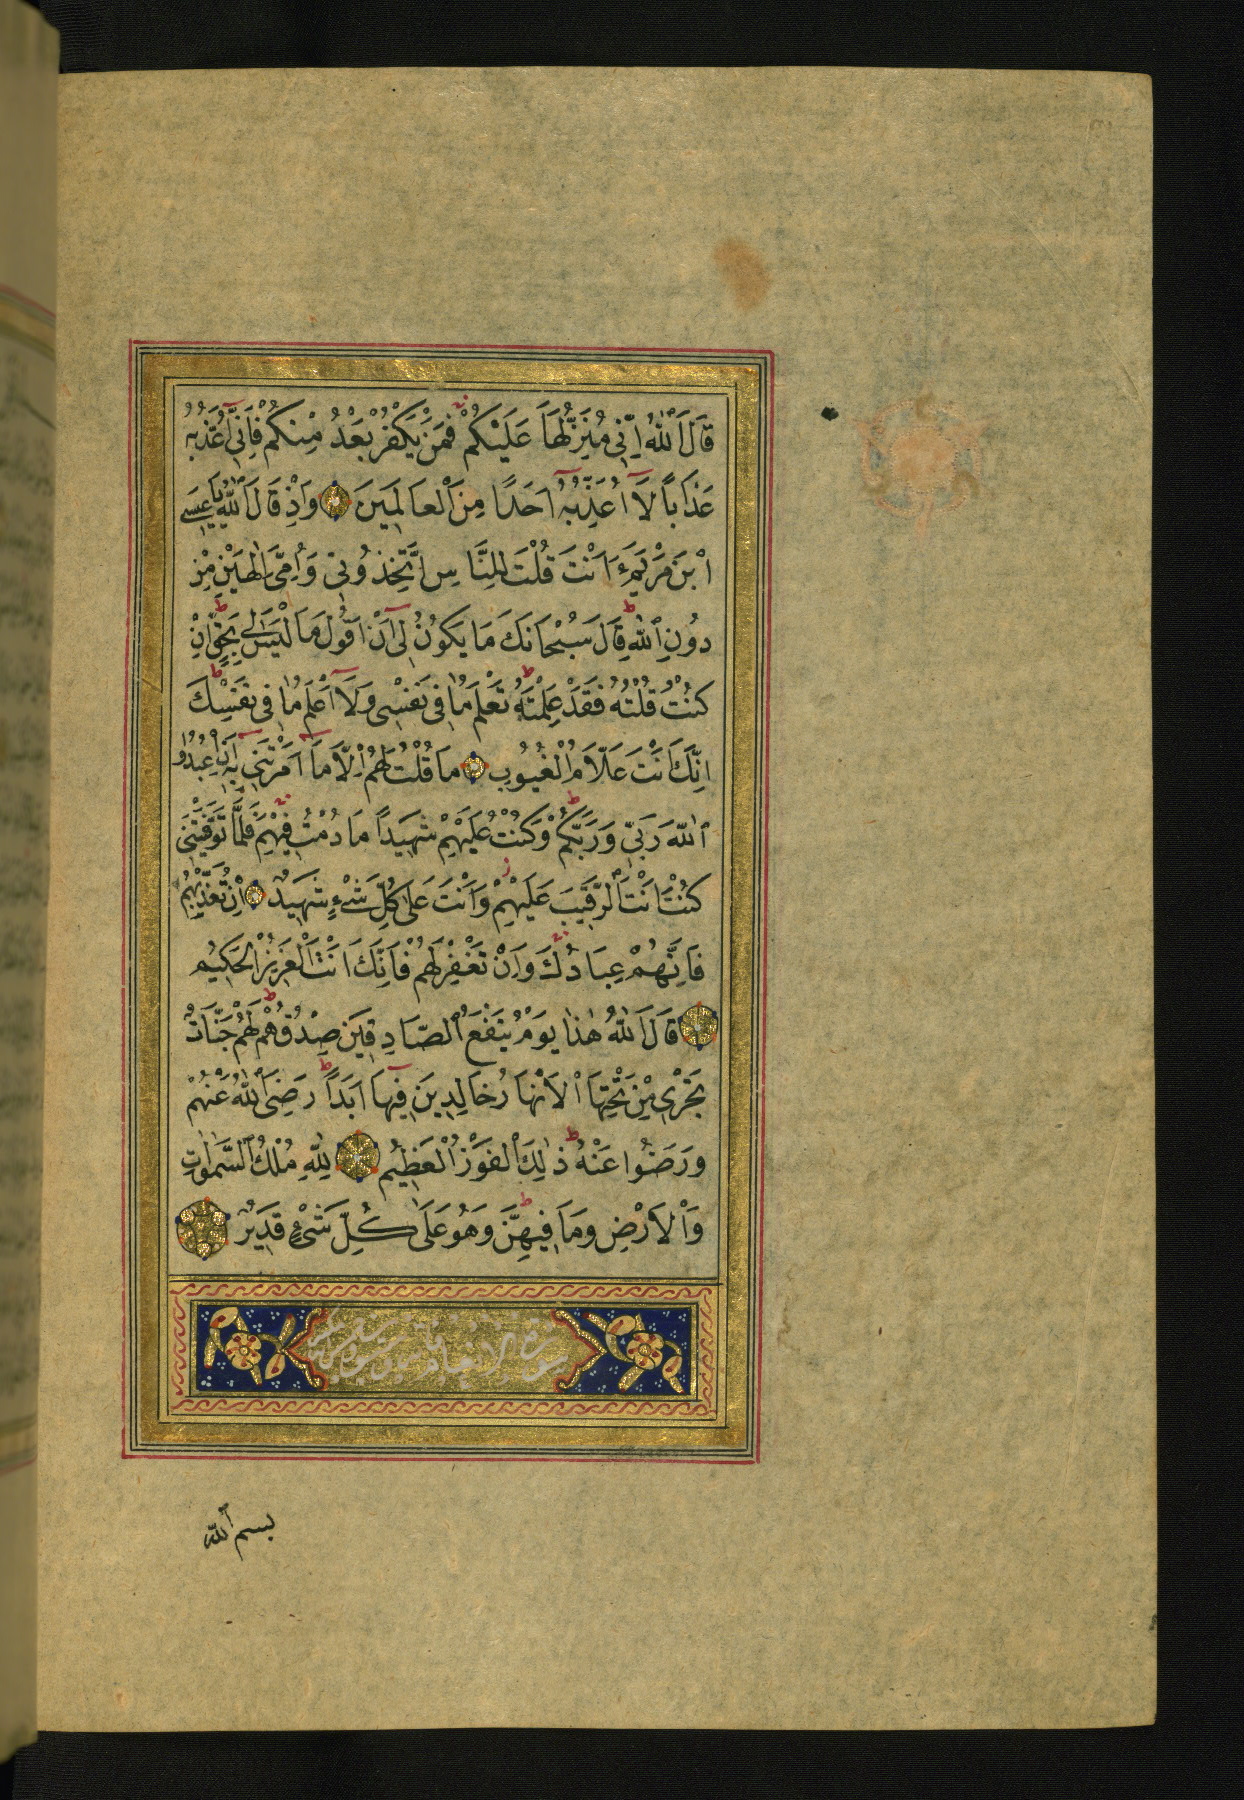 قَالَ ٱللّٰهُ اِنّٖي مُنَزِّلُهَا عَلَيْكُمْ فَمَنْ يَكْفُرْ بَعْدُ مِنْكُمْ فَاِنّٖٓي اُعَذِّبُهُ
عَذَابًا لَآ اُعَذِّبُهُٓ اَحَدًا مِنَ ٱلْعَالَمٖينَ وَاِذْ قَالَ ٱللّٰهُ يَا عٖيسَى
ٱبْنَ مَرْيَمَ ءَاَنْتَ قُلْتَ لِلنَّاسِ ٱتَّخِذُونٖي وَاُمِّيَ اِلٰهَيْنِ مِنْ
دُونِ ٱللّٰهِ قَالَ سُبْحَانَكَ مَا يَكُونُ لٖٓي اَنْ اَقُولَ مَا لَيْسَ لٖي بِحَقٍّ اِنْ
كُنْتُ قُلْتُهُ فَقَدْ عَلِمْتَهُ تَعْلَمُ مَا فٖي نَفْسٖي وَلَآ اَعْلَمُ مَا فٖي نَفْسِكَ
اِنَّكَ اَنْتَ عَلَّامُ ٱلْغُيُوبِ مَا قُلْتُ لَهُمْ اِلَّا مَآ اَمَرْتَنٖي بِهٖٓ اَنِ ٱعْبُدُوا
ٱللّٰهَ رَبّٖي وَرَبَّكُمْ وَكُنْتُ عَلَيْهِمْ شَهٖيدًا مَا دُمْتُ فٖيهِمْ فَلَمَّا تَوَفَّيْتَنٖي
كُنْتَ اَنْتَ ٱلرَّقٖيبَ عَلَيْهِمْ وَاَنْتَ عَلٰى كُلِّ شَيْءٍ شَهٖيدٌ اِنْ تُعَذِّبْهُمْ
فَاِنَّهُمْ عِبَادُكَ وَاِنْ تَغْفِرْ لَهُمْ فَاِنَّكَ اَنْتَ ٱلْعَزٖيزُ ٱلْحَكٖيمُ
قَالَ ٱللّٰهُ هٰذَا يَوْمُ يَنْفَعُ ٱلصَّادِقٖينَ صِدْقُهُمْ لَهُمْ جَنَّاتٌ
تَجْرٖي مِنْ تَحْتِهَا ٱلْاَنْهَارُ خَالِدٖينَ فٖيهَآ اَبَدًا رَضِيَ ٱللّٰهُ عَنْهُمْ
وَرَضُوا عَنْهُ ذٰلِكَ ٱلْفَوْزُ ٱلْعَظٖيمُ لِلّٰهِ مُلْكُ ٱلسَّمٰوَاتِ
وَٱلْاَرْضِ وَمَا فٖيهِنَّ وَهُوَ عَلٰى كُلِّ شَيْءٍ قَدٖيرٌ
سورة الانعام
بسم ٱللّه